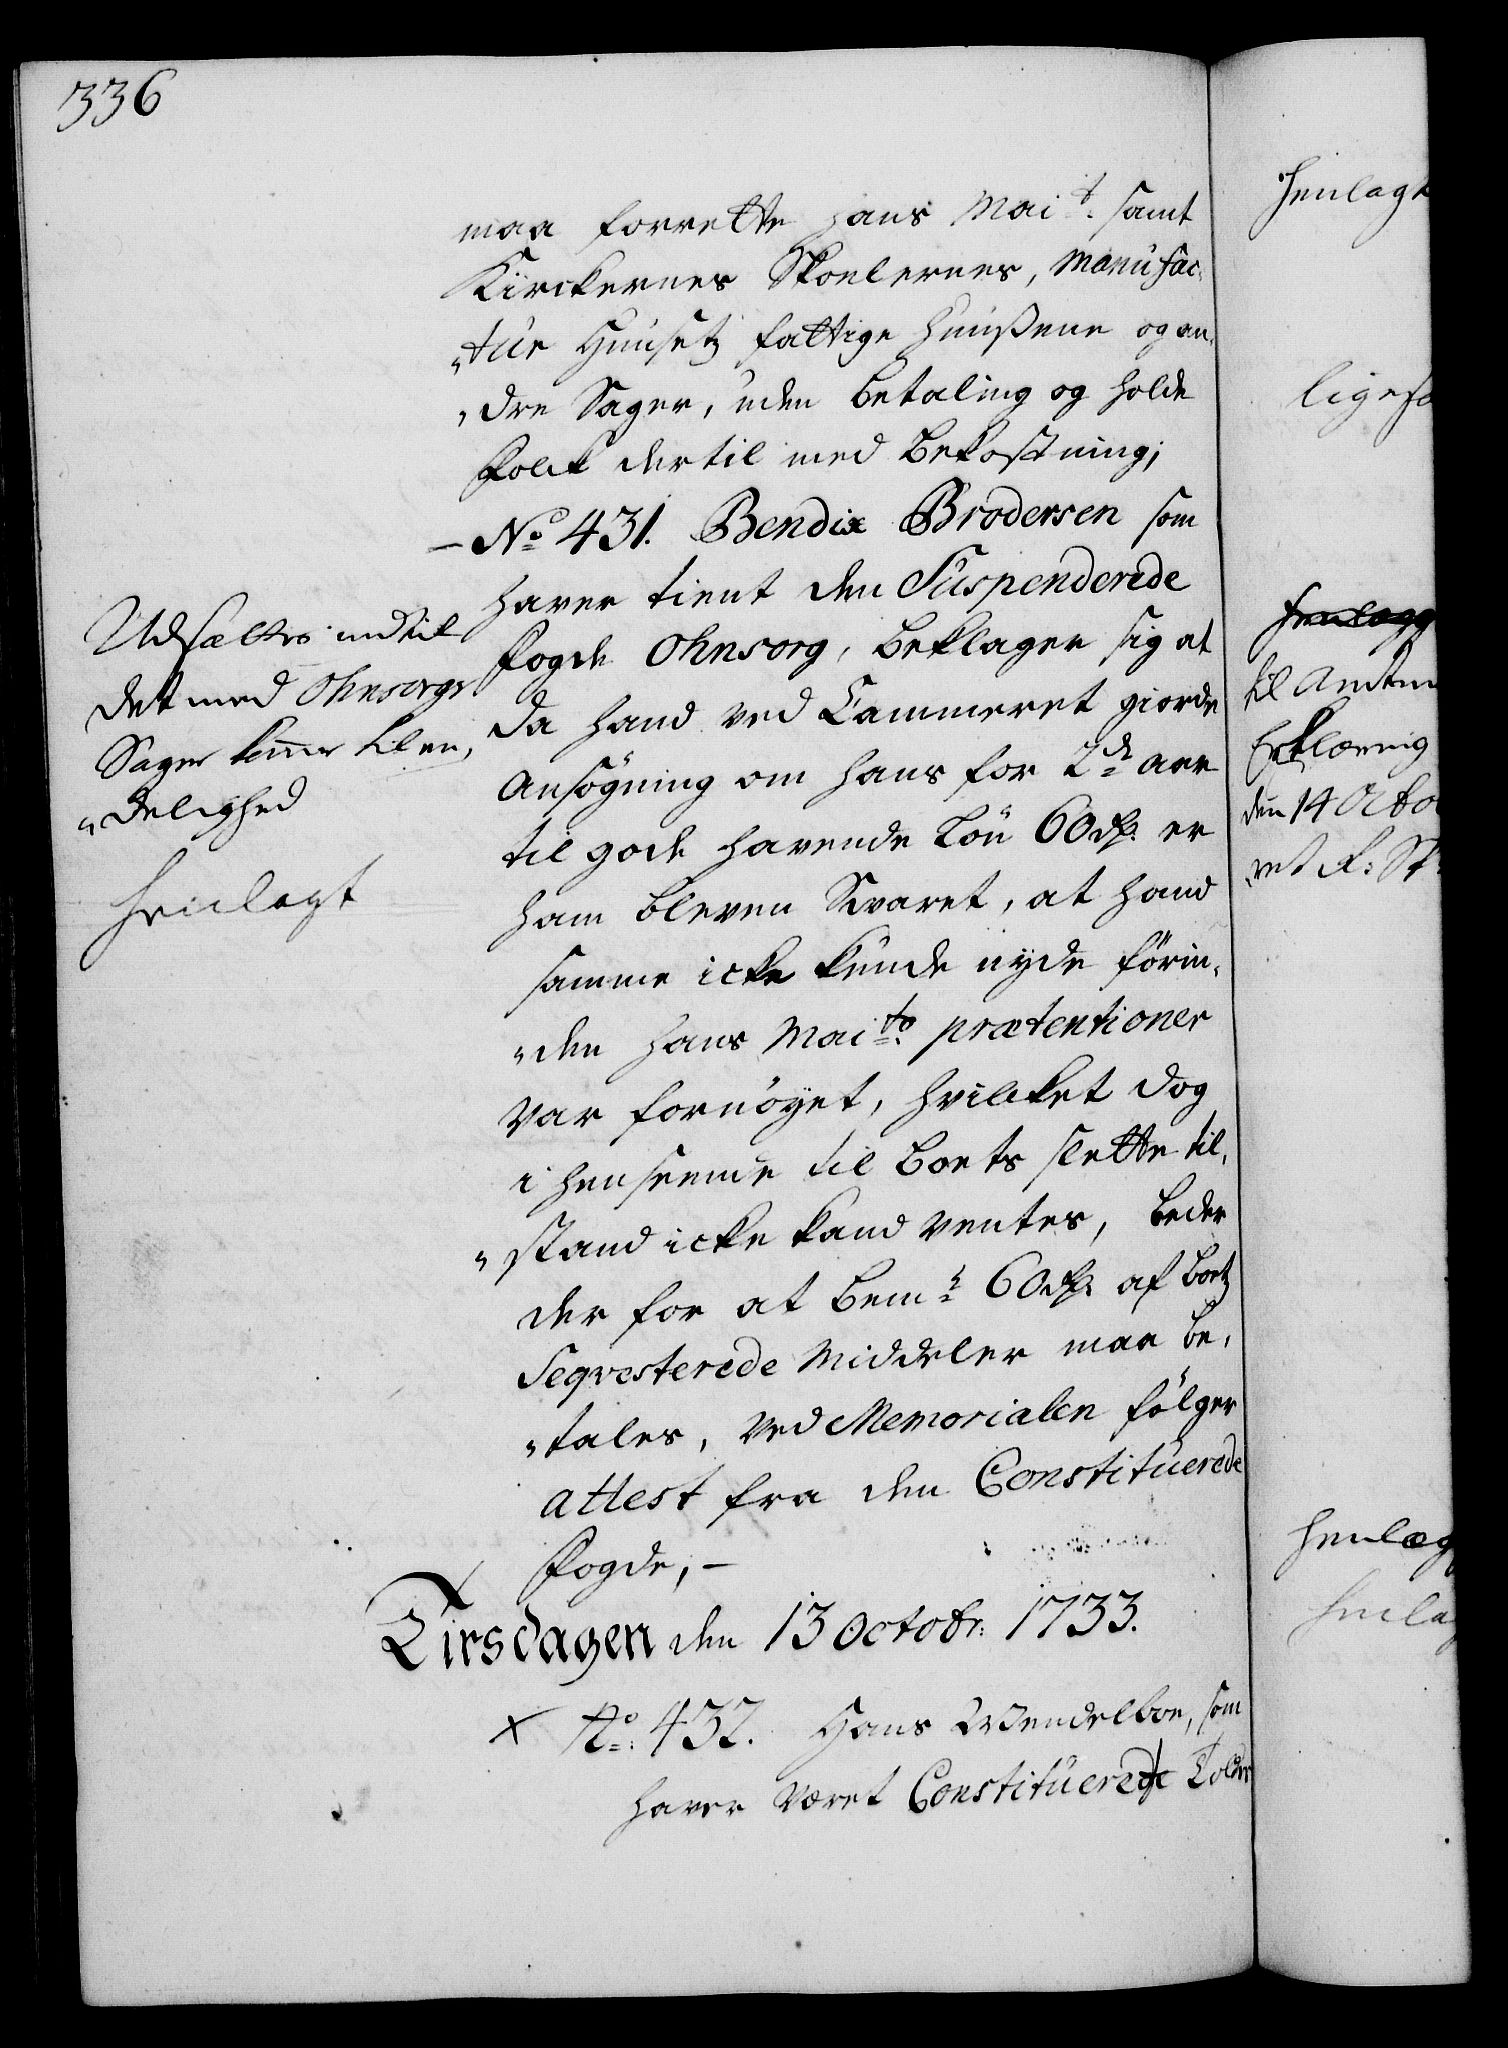 336
maa forrette hans Mai:t samt
Kirckernes Skoelernes, Manufac„
„tur Huusetz fattige Huußene og an„
„dre Sager, uden betaling og holde
Folck dertil med bekostning;
– No 431. Bendix Brodersen som
haver tient den Suspenderede
Fogde Ohnsorg, beklager sig at
da hand ved Cammeret giorde
Ansøgning om hans for 2de aar
til gode havende Løn 60 rdr. er
ham bleven Svaret, at hand
samme icke kunde nyde førin„
„den hans Mai:ts prætentioner
var fornøyet, hvilcket dog
i henseende til boets slette til„
„stand icke kand ventes, beder
der for at bem:te 60 rdr. af boetz
Seqvesterede Middeler maa be„
„tales, ved Memorialen følger
attest fra den Constituerede
Fogde, –
Udsættes indtil
det med Ohnsorgs
Sager komer til en„
„delighed
henlagt
Tirsdagen den 13 Octobr: 1733.
x No: 432. Hans Wendelboe, som
haver været Constituerede Tolder
henlagt
ligesa
henlægg
til Amtm
Erklæring
den 14 Octo
ved F: Sk
henlæg
henla